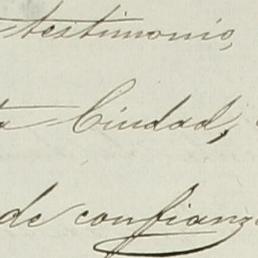 testimonio,
Ciudad,
de confianz